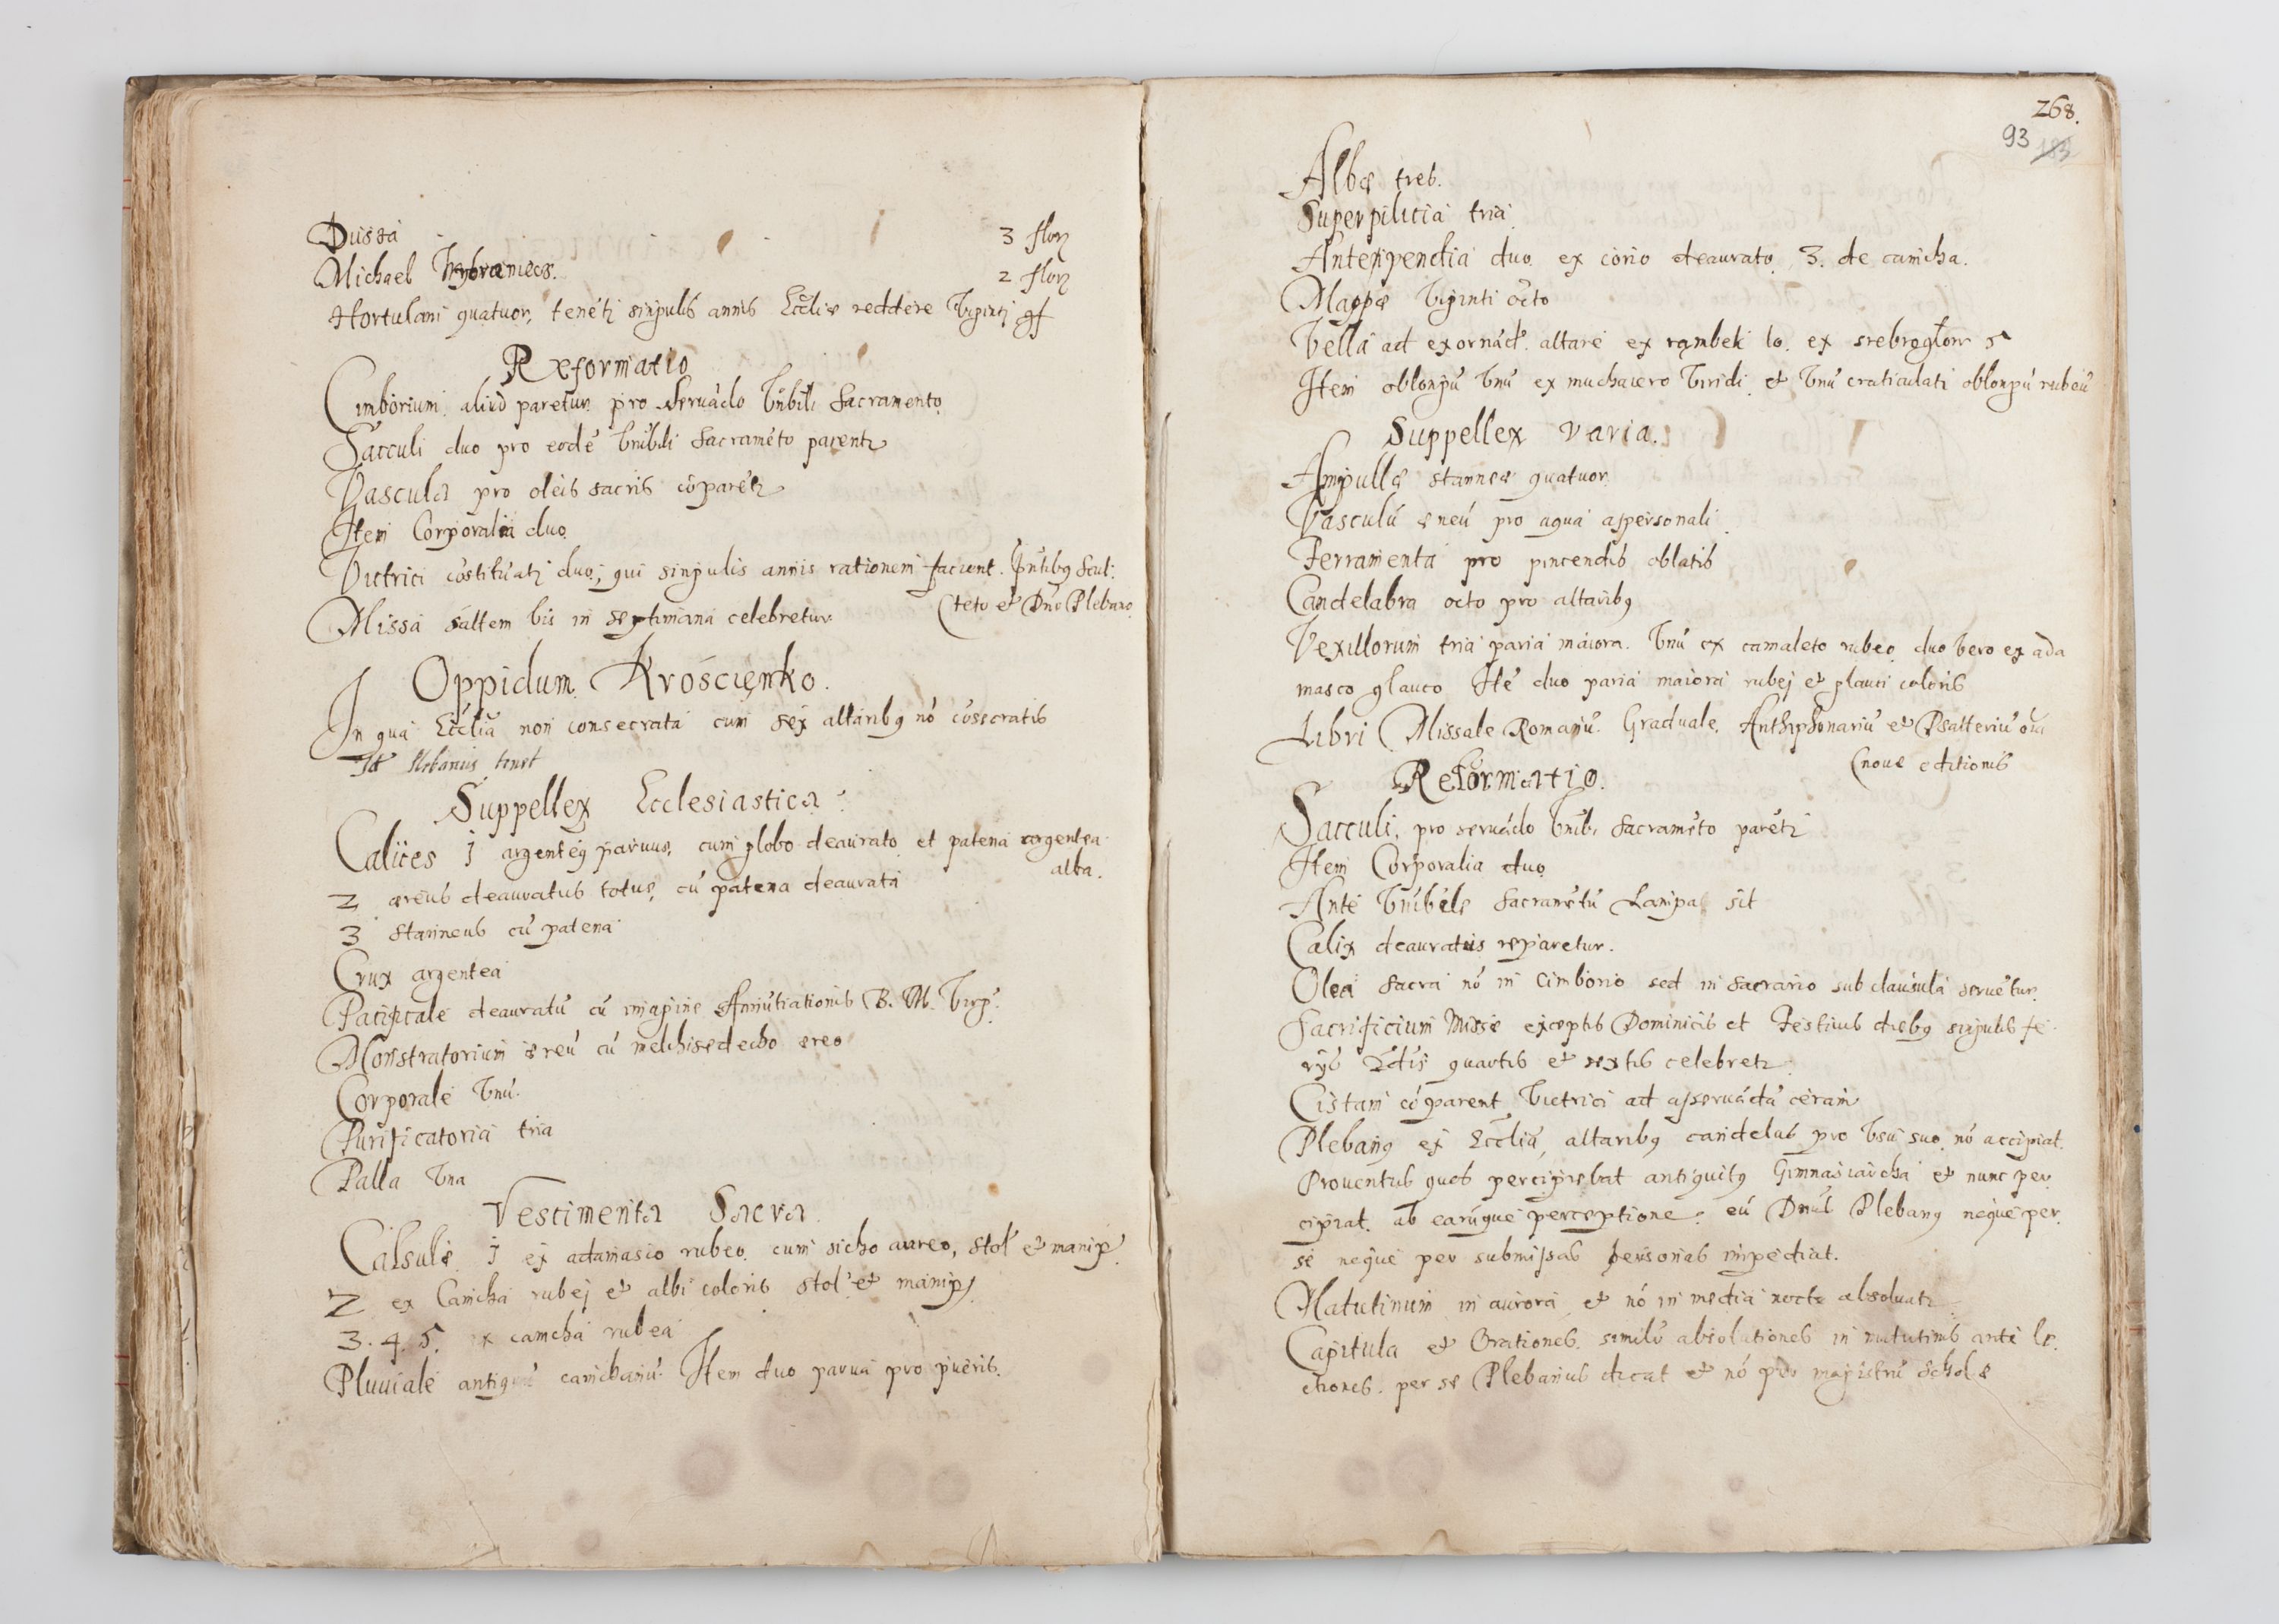 Dussa 3 flor
Michael 2 flor
Hortulani quatuor, tenét singulis annis Eccliæ reddere Viginti gr
Reformatio
Cimborium aliud paretur pro seruádo Vnbili Sacramento
Sacculi duo pro eodé Vnibili Sacraméto parent
Vascula pro oleis sacris cóparét
Item Corporalia duo
Victrici cóstituát duo, qui singulis annis rationem faciant. Pntibq Scul:
(teto et Dno Plebano
Missa saltem bis in septimana celebretur
Oppidum Krościęnko.
In qua Ecclia non consecrata cum sex altaribq nó cósecratis
Id Plebanus tenet
Suppellex Ecclesiastica
Calices 1 argenteq paruus, cum globo deaurato et patena argentea
alba.
2 æreus deauratus totus, cú patena deaurata
3 stanneus cú patena
Crux argentea
Pacificale deauratú cú imagine Annútiationis B. M. Virg.
Monstratorium æreú cú melchisedecho æreo
Corporale Vnú.
Purificatoria tria
Palla Vna
Vestimenta Sacra
Calsulæ 1 ex adamasco rubeo cum sicho aureo, stol et manip
2 ex Camcha rubej et albi coloris stol et manip
3. 4. 5. ex camcha rubea
Pluuiale camchanú. Item duo parua pro pueris.
268.
93 183
Albæ tres.
Superpilicia tria
Antependia duo ex corio deaurato, 3. de camcha.
Mappæ Viginti octo
Vella ad exornád. altare ex rąmbek 10. ex srebrogłow 5
Item oblongú Vnú ex muchaiero Viridi et Vnú craticulati oblongú rubeú
Suppellex varia.
Ampullæ stanneæ quatuor
Vasculú æneú pro aqua aspersonali
Ferramenta pro pincendis oblatis
Candelabra octo pro altaribq
Vexillorum tria paria maiora. Vnú ex camaleto rubeo duo Vero ex ada
masco glauco Ité duo paria maiora rubej et glauci coloris
Libri Missale Romanú. Graduale, Anthiphonariú et Psalteriú oia
(nouæ editionis
Reformatio.
Sacculi pro seruádo Vnibi Sacraméto parét
Item Corporalia duo
Ante Vnibile Sacramétú Lampas sit
Calix deauratus reparetur.
Olea sacra nó in Cimborio sed in sacrario sub clausula seruétur.
Sacrificium Missæ exceptis Dominicis et Festiuis diebq singulis fe
rijs quartis et sextis celebret
Cistam cóparent Victrici ad asseruádá ceram
Plebanq ex Ecclia, altaribq candelas pro Vsu suo nó accipiat.
Prouentus quos percipiebat antiquitq Gimnasiarcha et nunc per
cipiat. ab earúque perceptione eú Dnus Plebanq neque per
se neque per submissas personas impediat.
Matutinum in aurora et nó in media nocte absoluat
Capitula et Orationes. similr absolutiones in matutinis ante le
ctiones. per se Plebanus dicat et nó per magistrú scholæ